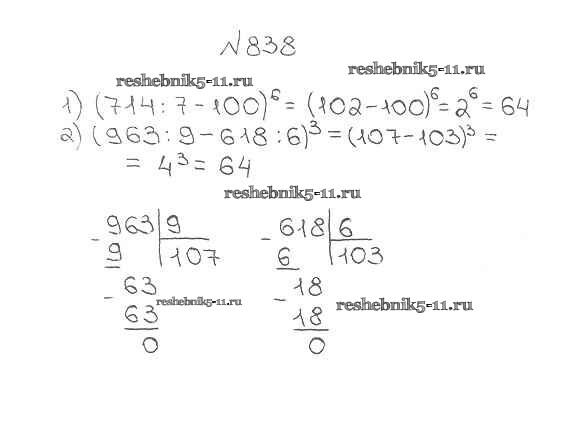 №838
reshebnik5-11.ru
reshebnik5-11.ru
1) (714 : 7 - 100)⁶ = (102 - 100)⁶ = 2⁶ = 64
2) (963 : 9 - 618 : 6)³ = (107 - 103)³ =
= 4³ = 64
reshebnik5-11.ru
- 963 | 9
9 | 107
- 63
63
0
- 618 | 6
6 | 103
- 18
18
0
reshebnik5-11.ru
reshebnik5-11.ru